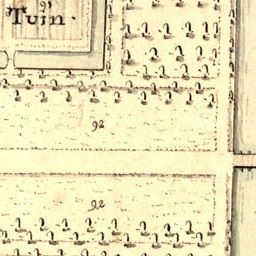 Tuin.
92
92